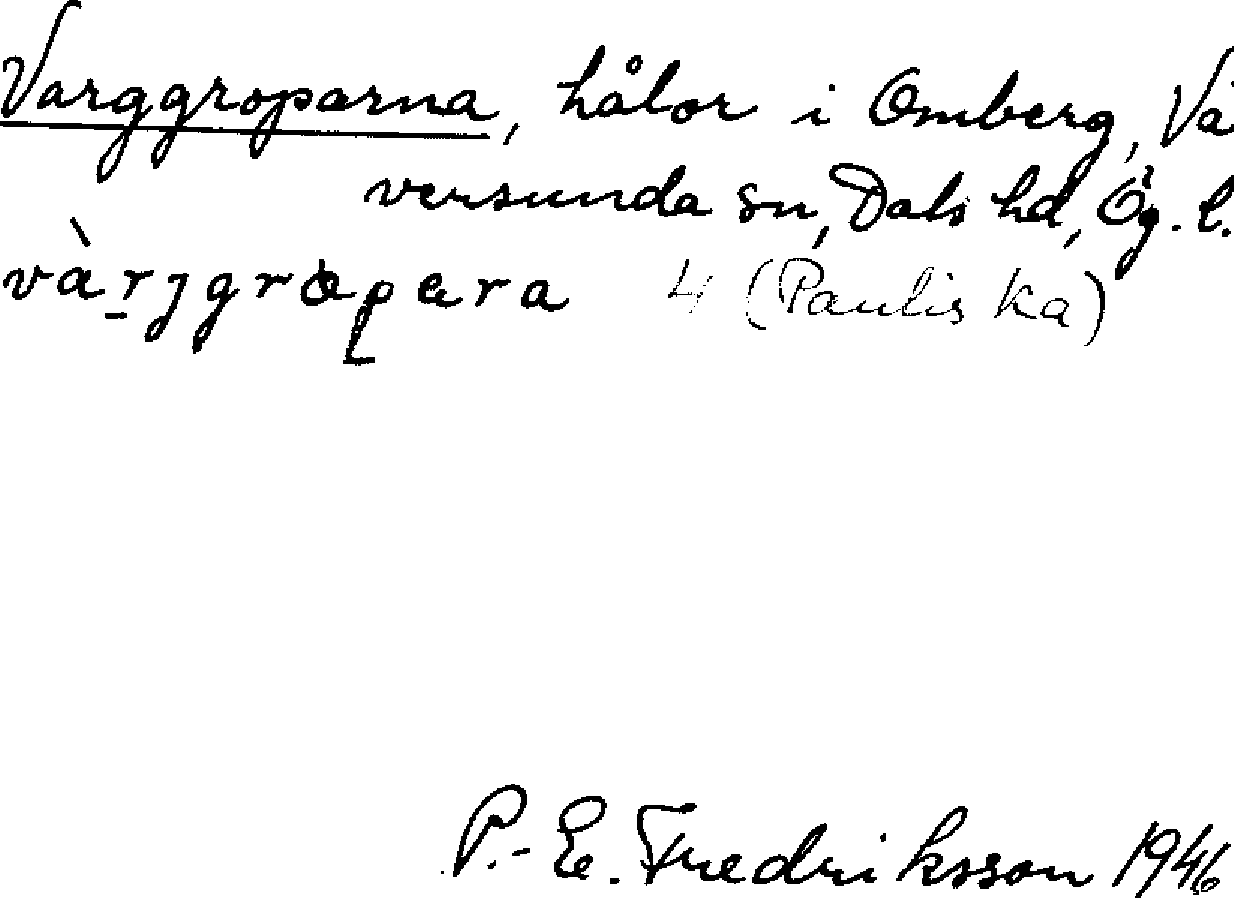 Varggroparna, hålor i Omberg, Vä
versunda sn, Dals hd, Ög. l.
4 (Pauliska)
P.-E. Fredriksson 1946